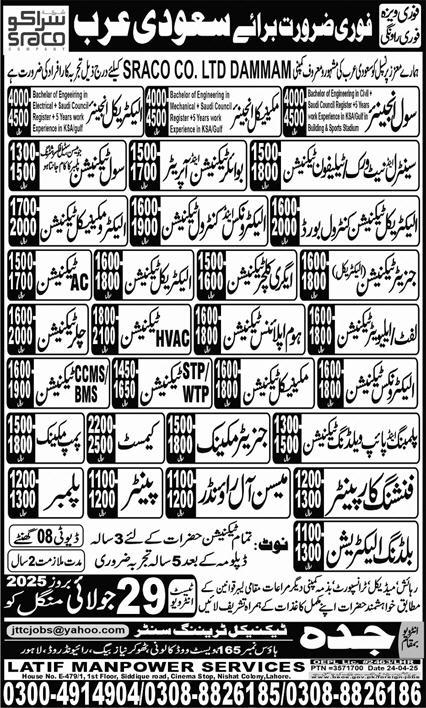 فوری ویزہ
فوری روانگی
فوری ضرورت برائے سعودی عرب
سراكو
SRACO
COMPANY
ہمارے معزز پرنسپل کو سعودی عرب کی مشہور و معروف کمپنی SRACO CO. LTD DAMMAM کیلئے درج ذیل تجربہ کار افراد کی ضرورت ہے
سول انجینئر
Bachelor of Engineering in Civil +
Saudi Council Register +5 Years
work Experience in KSA/Gulf in
Building & Sports Stadium
4000
4500
ریال
مکینیکل انجینئر
Bachelor of Engineering in
Mechanical + Saudi Council
Register +5 Years work
Experience in KSA/gulf
4000
4500
ریال
الیکٹریکل انجینئر
Bachelor of Engineering in
Electrical + Saudi Council
Register +5 Years work
Experience in KSA/gulf
4000
4500
ریال
سینٹرل سیٹ ورک/ٹیلیفون ٹیکنیشن
1500
1800
ریال
بوائلر ٹیکنیشن اینڈ آپریٹر
1500
1700
ریال
سول ٹیکنیشن
1300
1500
ریال
الیکٹریکل ٹیکنیشن کنٹرول بورڈ
1600
2000
ریال
الیکٹرونکس اینڈ کنٹرول ٹیکنیشن
1600
1900
ریال
الیکٹرو مکینیکل ٹیکنیشن
1700
2000
ریال
جنریٹر ٹیکنیشن (الیکٹریکل)
1600
1800
ریال
ایگری کلچر ٹیکنیشن
1500
1600
ریال
الیکٹریکل ٹیکنیشن
1600
1800
ریال
AC ٹیکنیشن
1500
1700
ریال
لفٹ/ایلیویٹر ٹیکنیشن
1600
1800
ریال
ہوم اپلائنس ٹیکنیشن
1600
1800
ریال
HVAC ٹیکنیشن
1800
2100
ریال
چلر ٹیکنیشن
1600
2000
ریال
الیکٹرونکس ٹیکنیشن
1600
1800
ریال
مکینیکل ٹیکنیشن
1600
1800
ریال
STP/
WTP
ٹیکنیشن
1450
1650
ریال
CCMS/
BMS
ٹیکنیشن
1600
1900
ریال
پلمبنگ اینڈ پائپ ویلڈنگ ٹیکنیشن
1300
1500
ریال
جنریٹر مکینک
1500
1800
ریال
کیمسٹ
2200
2500
ریال
پمپ مکینک
1500
1800
ریال
فنشنگ کارپینٹر
1200
1300
ریال
میسن آل راؤنڈر
1100
1200
ریال
پینٹر
1100
1200
ریال
پلمبر
1200
1300
ریال
بلڈنگ الیکٹریشن
1100
1300
ریال
نوٹ:
تمام ٹیکنیشن حضرات کے لئے 3 سالہ
ڈپلومہ کے بعد 5 سالہ تجربہ ضروری
ڈیوٹی 08 گھنٹے
مدت ملازمت 2 سال
رہائش/میڈیکل/ٹرانسپورٹ بذمہ کمپنی دیگر مراعات مقامی لیبر قوانین کے
مطابق خواہشمند حضرات اپنے مکمل کاغذات کے ہمراہ تشریف لائیں
ٹیسٹ
انٹرویو
29 جولائی بروز 2025
منگل کو
انٹرویو
بمقام
جدہ ٹیکنیکل ٹریننگ سنٹر
jttcjobs@yahoo.com
ہاؤس نمبر 165 ویسٹ ووڈ کالونی ٹھوکر نیاز بیگ، رائیونڈ روڈ، لاہور
LATIF MANPOWER SERVICES
OEPL Lic. #2463/LHR
PTN =3571700 Date 24-04-25
House No. E-479/1, 1st Floor, Siddique road, Cinema Stop, Nishat Colony,Lahore.
0300-4914904/0308-8826185/0308-8826186